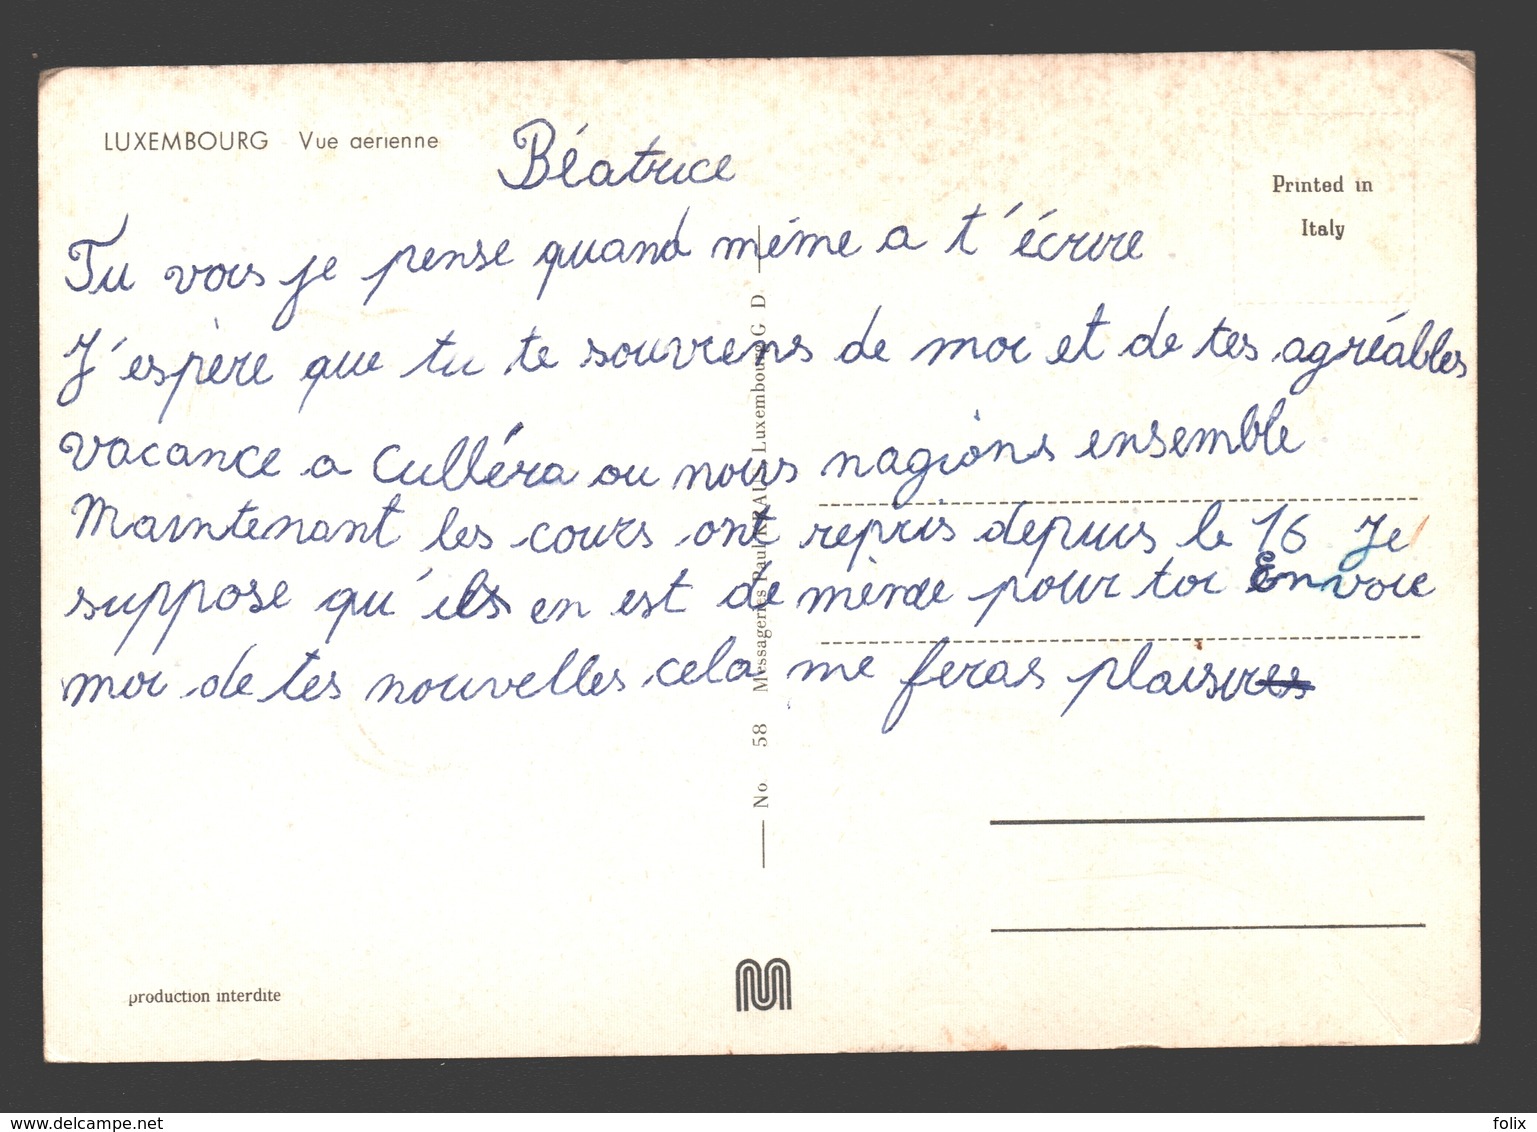 LUXEMBOURG Vue aérienne
Béatrice
Printed in
Italy
Tu vois je pense quand même a t'écrire
J'espère que tu te souviens de moi et de tes agréables
vacance a Culléra ou nous nagions ensemble
Maintenant les cours ont repris depuis le 16 Je
suppose qu'ils en est de même pour toi Envoie
moi de tes nouvelles cela me feras plaisires
No 58 Messageries Paul KRAUS, Luxembourg G D.
production interdite
www.delcampe.net
folix